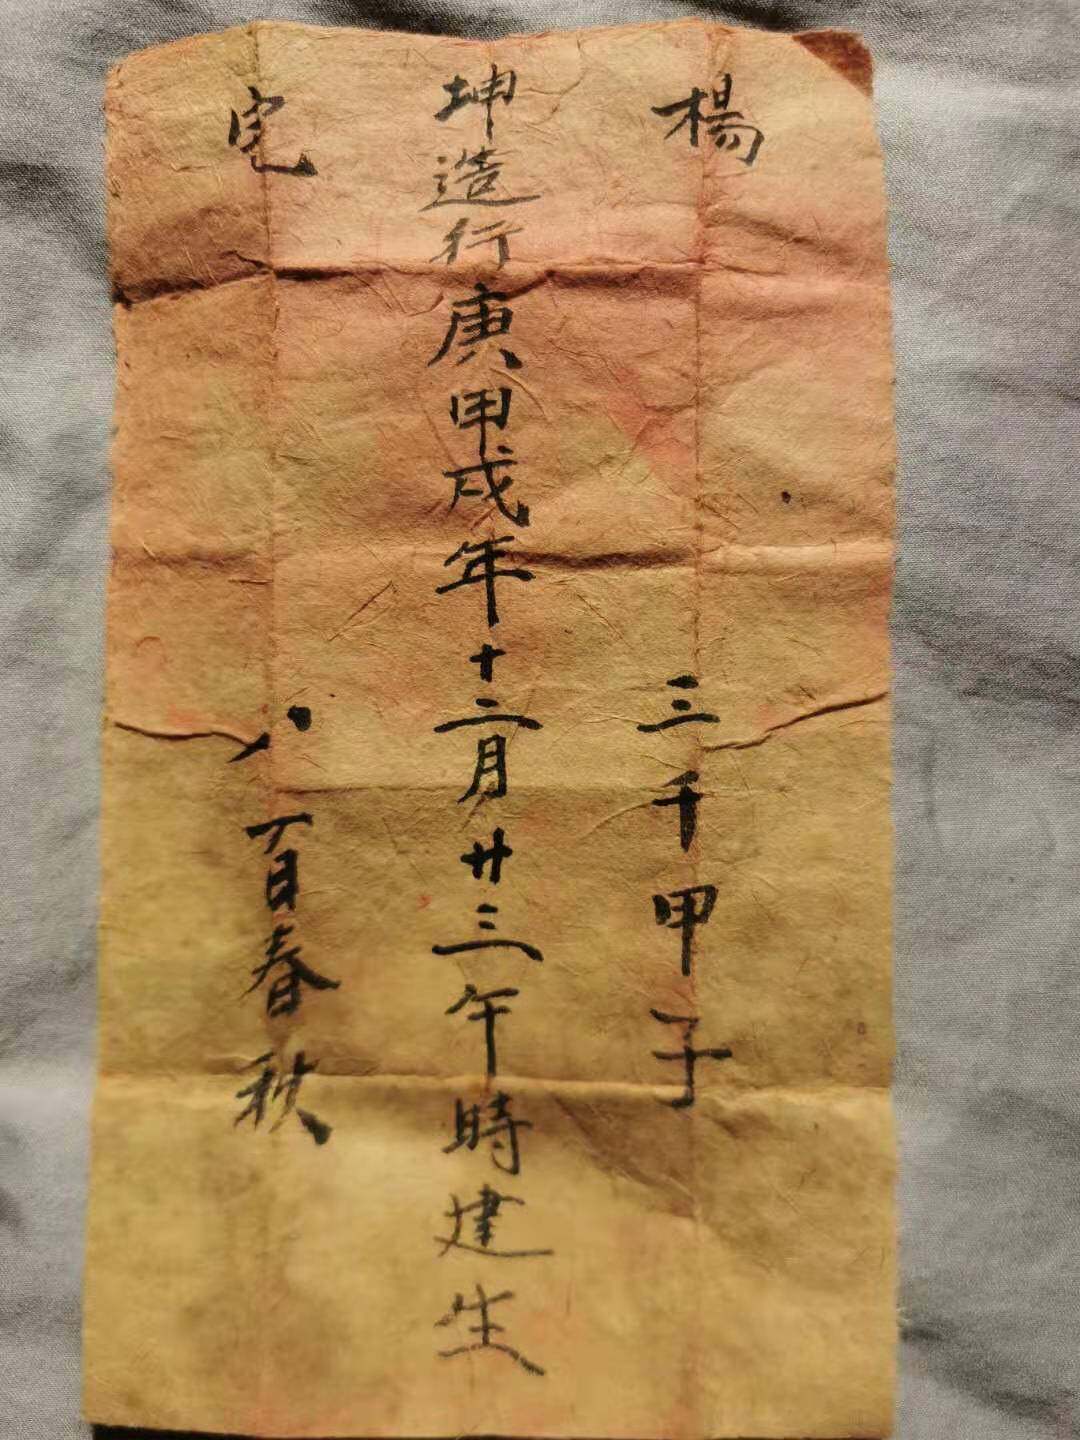 楊 三千甲子
坤造行庚甲戌年十二月廿三午時建生
宅 八百春秋